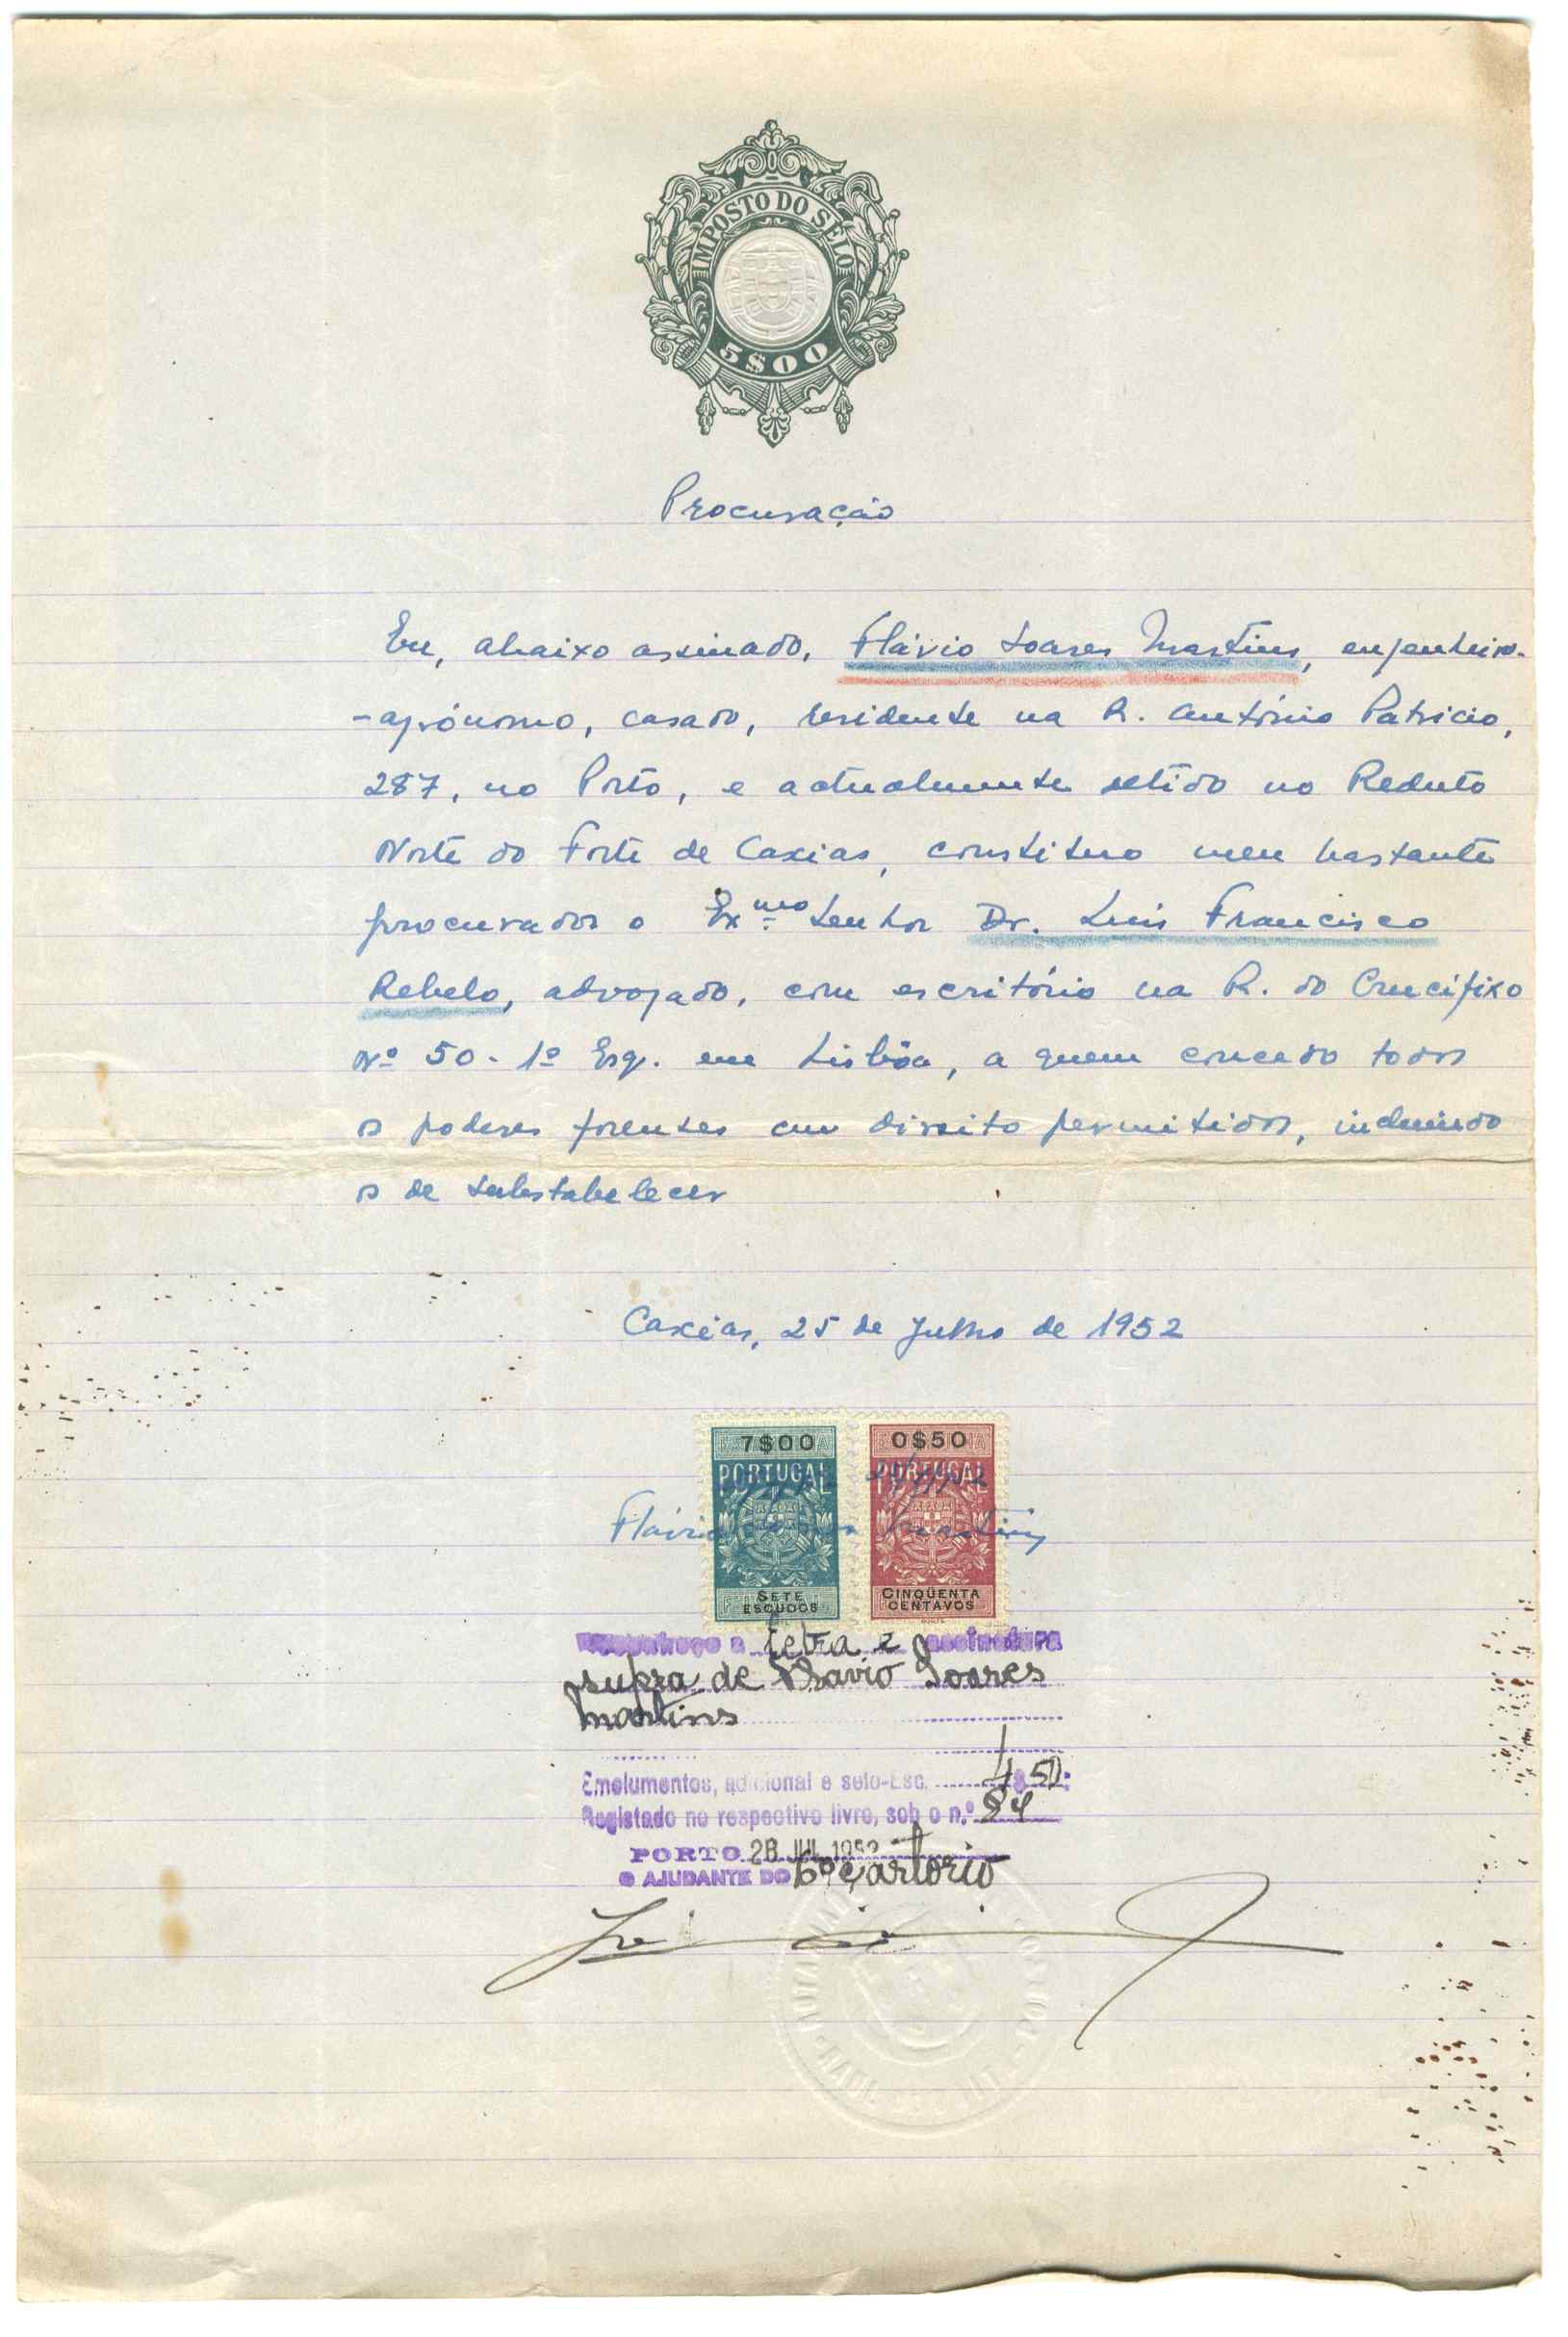 IMPOSTO DO SELO
5$00
Procuração
Eu, abaixo assinado, Flávio Soares Martins, engenheiro-
-agrónomo, casado, residente na R. António Patricio,
287, no Porto, e actualmente detido no Reduto
Norte do Forte de Caxias, constituo meu bastante
procurador o Exmo Senhor Dr. Luis Francisco
Rebelo, advogado, com escritório na R. do Crucifixo
Nº 50-1º Esq. em Lisbôa, a quem concedo todos
os poderes forenses em direito permitidos, incluindo
os de substabelecer
Caxias, 25 de Julho de 1952
7$00 0$50
PORTUGAL PORTUGAL
Flávio Martins
SETE CINQÜENTA
ESCUDOS CENTAVOS
Reconheço a letra e assinatura
supra de Flavio Soares
Martins
Emolumentos, adicional e selo-Esc. 4$50
Registado no respectivo livro, sob o n.º 84
PORTO 28 JUL 1952
O AJUDANTE DO 6º Cartorio